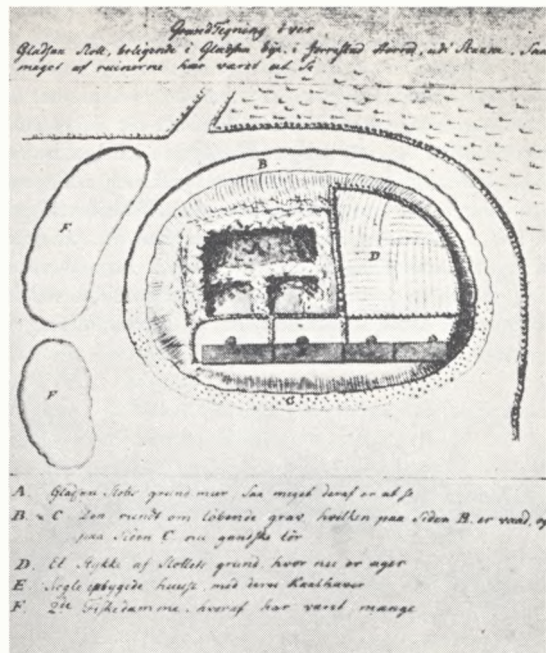 Grund Tegning över
Gladsax Slott, beliggende i Gladsax bÿe, i Herrestad Herred, udi Skaane, Saa
meget af ruinerne har varet at Se
B
F
D
F
C
A. Gladsax Slots grund muur, Saa meget deraf er at se
B. & C Den rundt om löbende grav, hvilken paa Siden B. er vaad, og
paa Siden C nu gandske tör
D. Et stykke af Slottets grund, hvor nu er ager
E Nogle opbygede huuse, med deres Kaalhauer
F. 2de Fiskedamme, hvoraf har varet mange